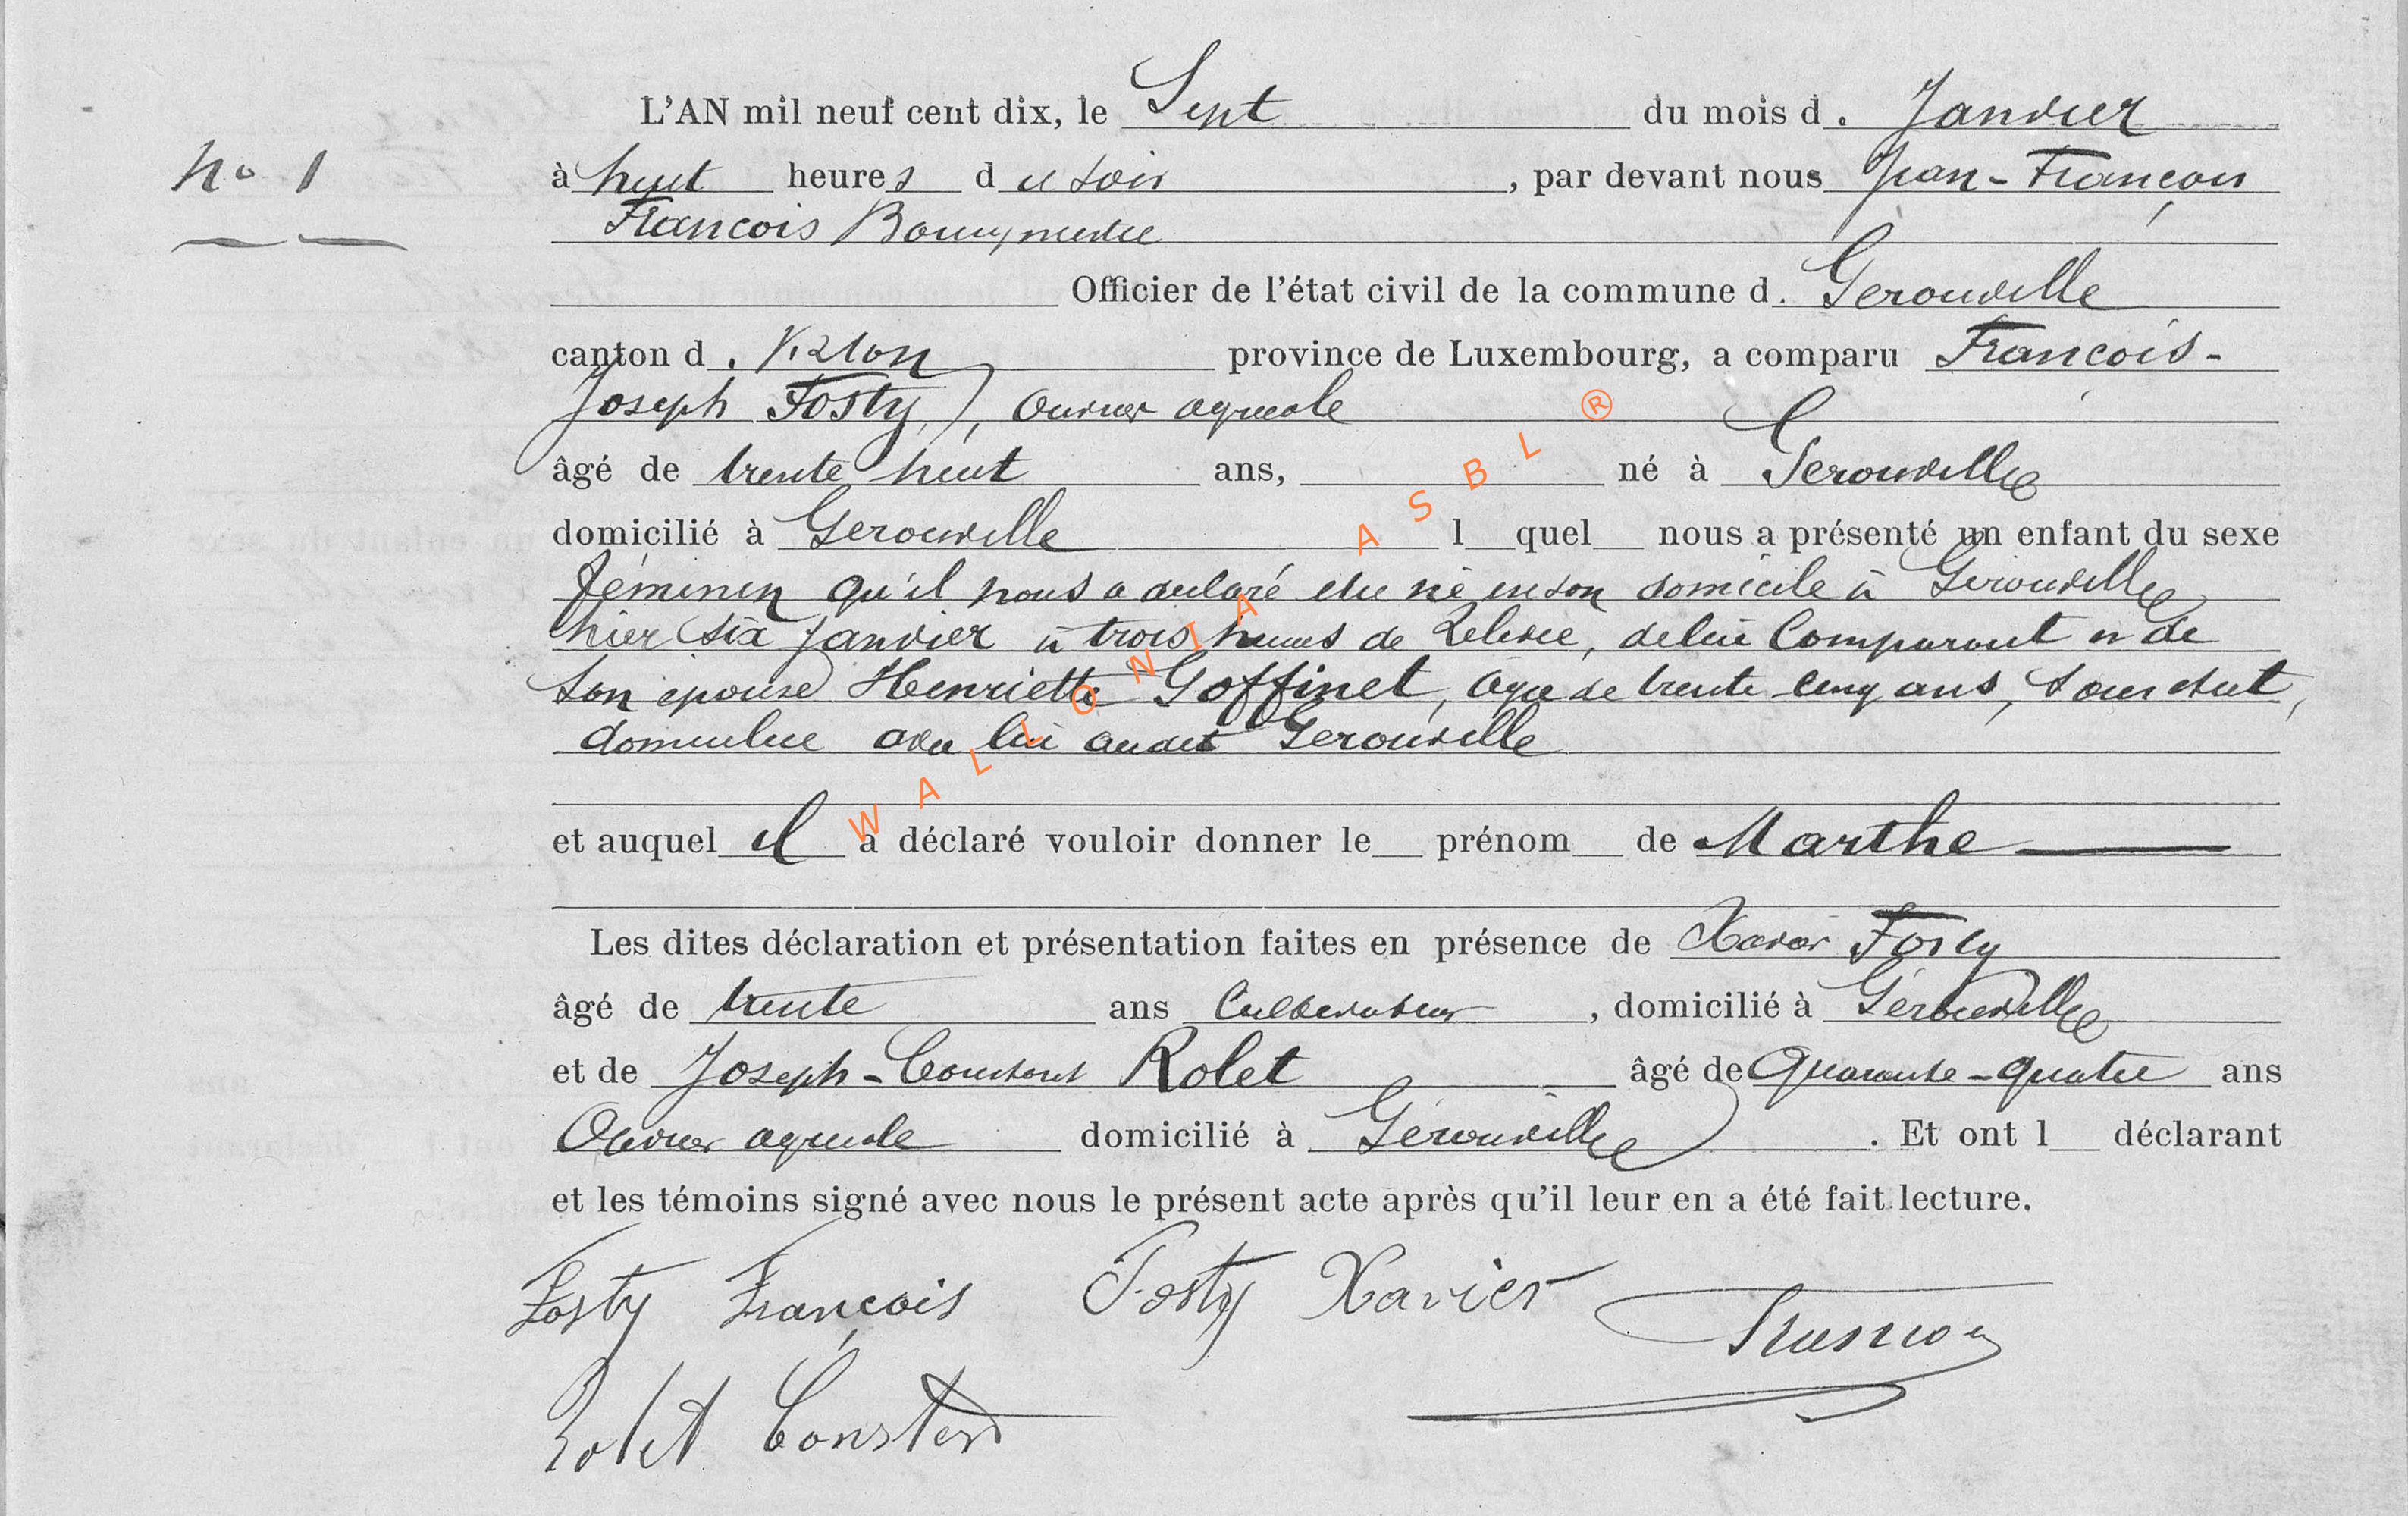 L'AN mil neuf cent dix, le Sept du mois d. Janvier
No 1
à huit heures du soir, par devant nous Jean-François
François
Officier de l'état civil de la commune d. Gerouville
canton d. Virton province de Luxembourg, a comparu François-
Joseph Fosty, ouvrier agricole
âgé de trente huit ans, né à Gerouville
domicilié à Gerouville l quel nous a présenté un enfant du sexe
féminin qu'il nous a déclaré être né en son domicile à Gérouville
hier six janvier à trois heures de relevée, de lui Comparant et de
son épouse Henriette Goffinet, âgée de trente cinq ans, sans état,
domiciliée avec lui audit Gérouville
et auquel il a déclaré vouloir donner le prénom de Marthe
Les dites déclaration et présentation faites en présence de Xavier Fosty
âgé de trente ans Cultivateur, domicilié à Gérouville
et de Joseph-Constant Rolet âgé de Quarante-quatre ans
Ouvrier agricole domicilié à Gérouville. Et ont l déclarant
et les témoins signé avec nous le présent acte après qu'il leur en a été fait lecture.
Fosty François Fosty Xavier
Rolet Constant
WALLONIA ASBL ®